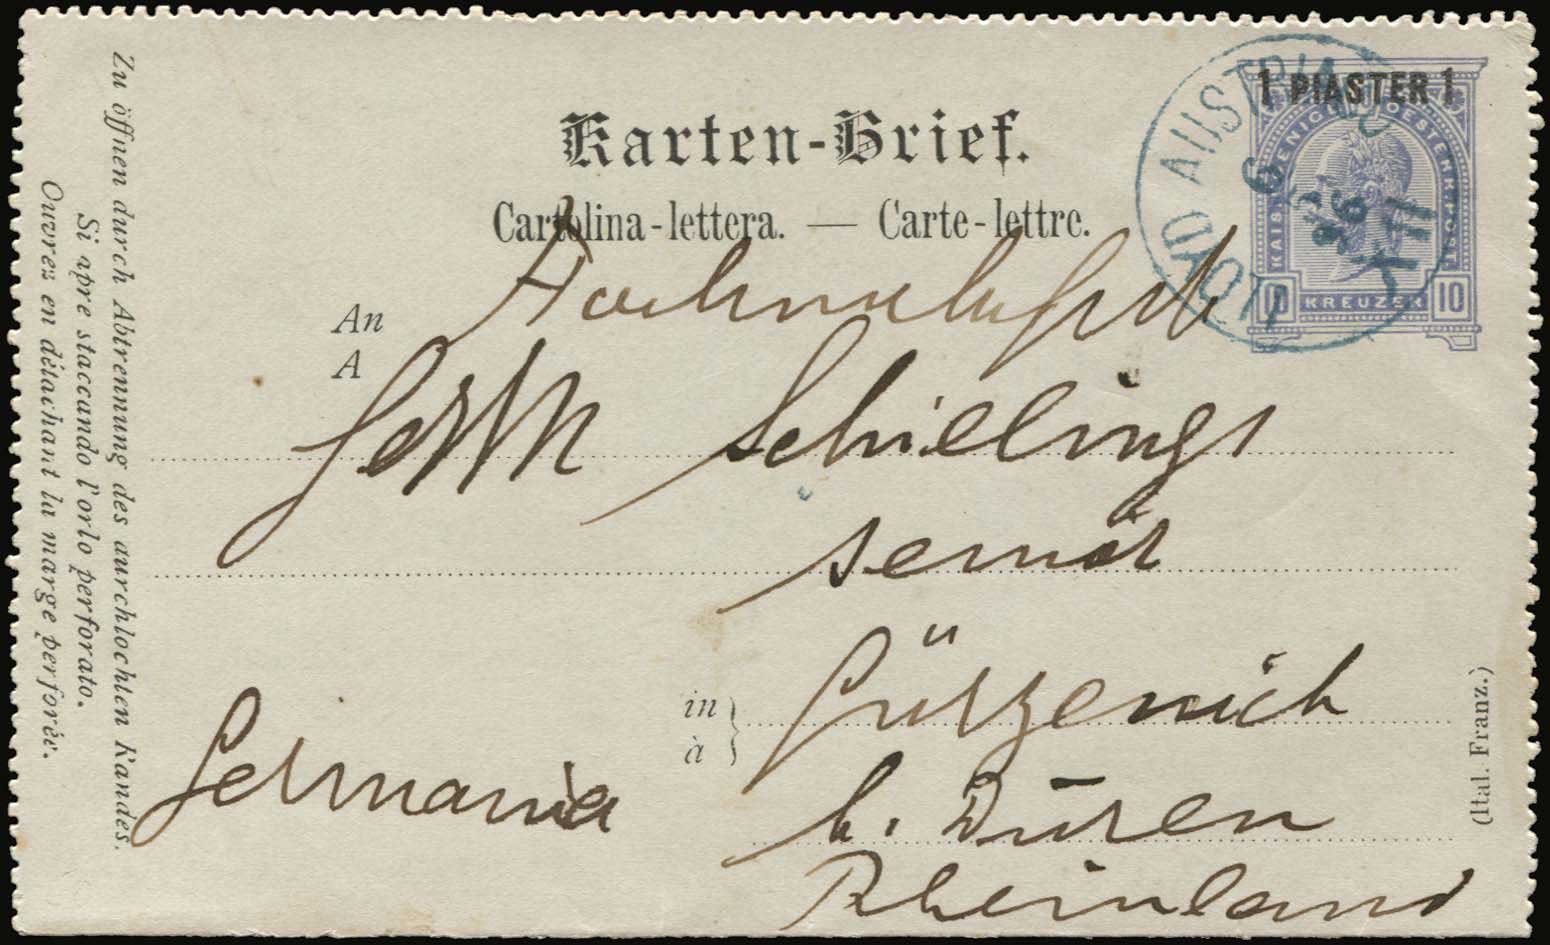 Karten-Brief.
Cartolina-lettera. — Carte-lettre.
1 PIASTER 1
KAISERL. KÖNIGL. OESTERR. POST
10 KREUZER 10
LLOYD AUSTRIACO
6
96
XII
An
A
Schillings
Gürzenich
in
à
b. Düren
Rheinland
Germania
Zu öffnen durch Abtrennung des durchlochten Randes.
Si apre staccando l'orlo perforato.
Ouvrez en détachant la marge perforée.
(Ital. Franz.)